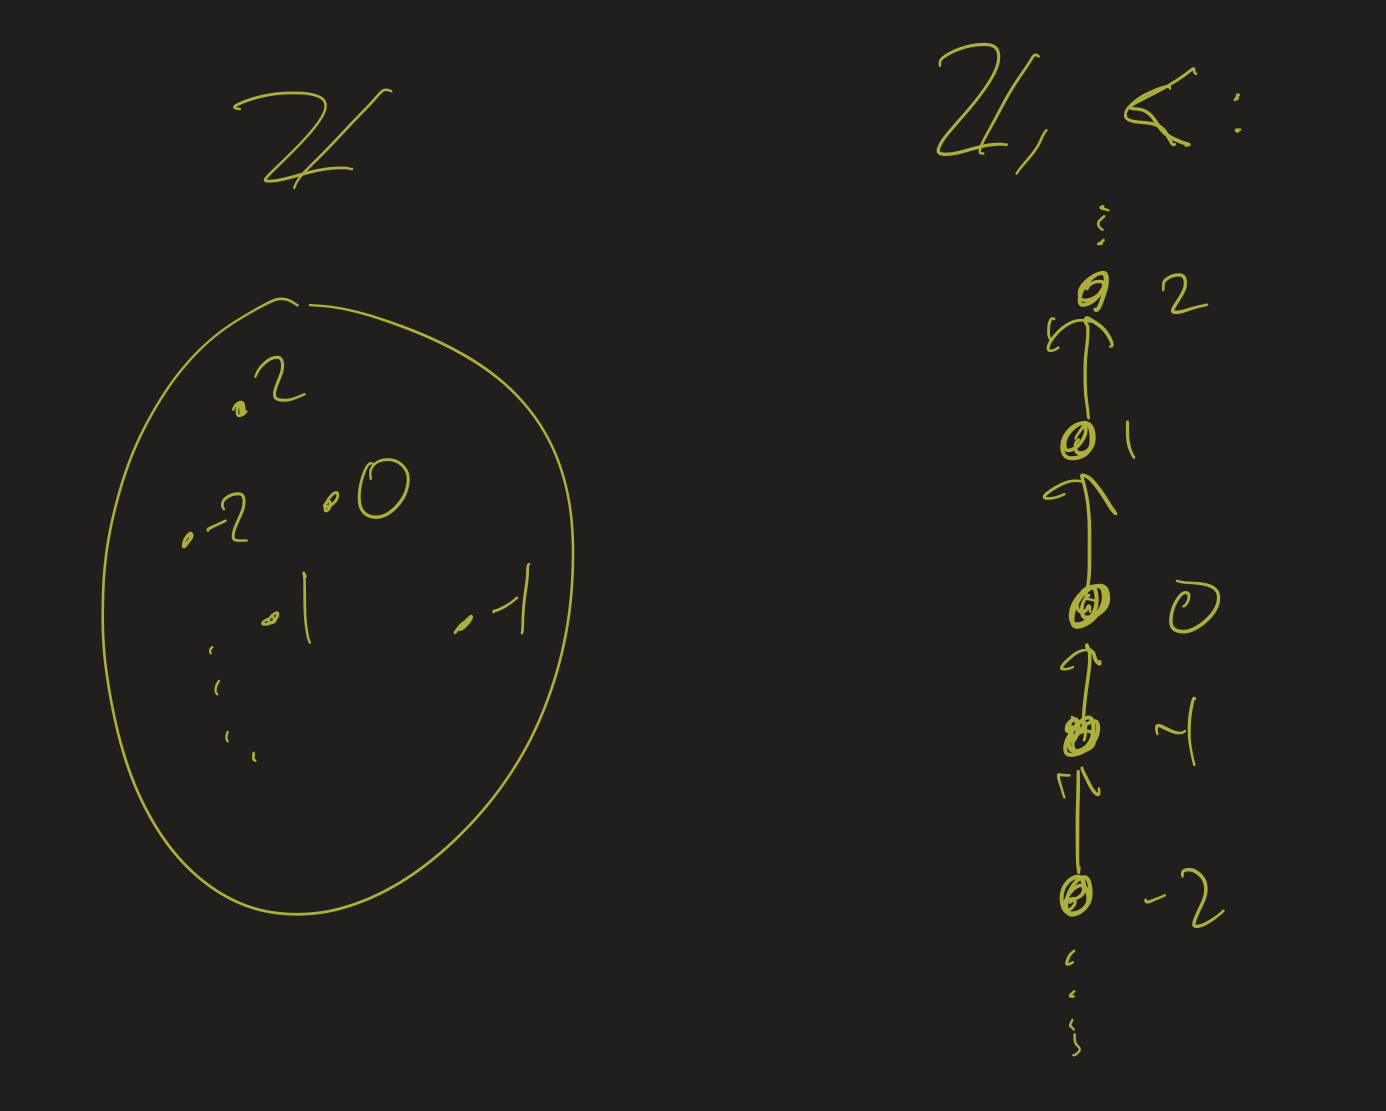 ℤ
2
0
-2
1
-1
ℤ, <:
2
1
0
-1
-2